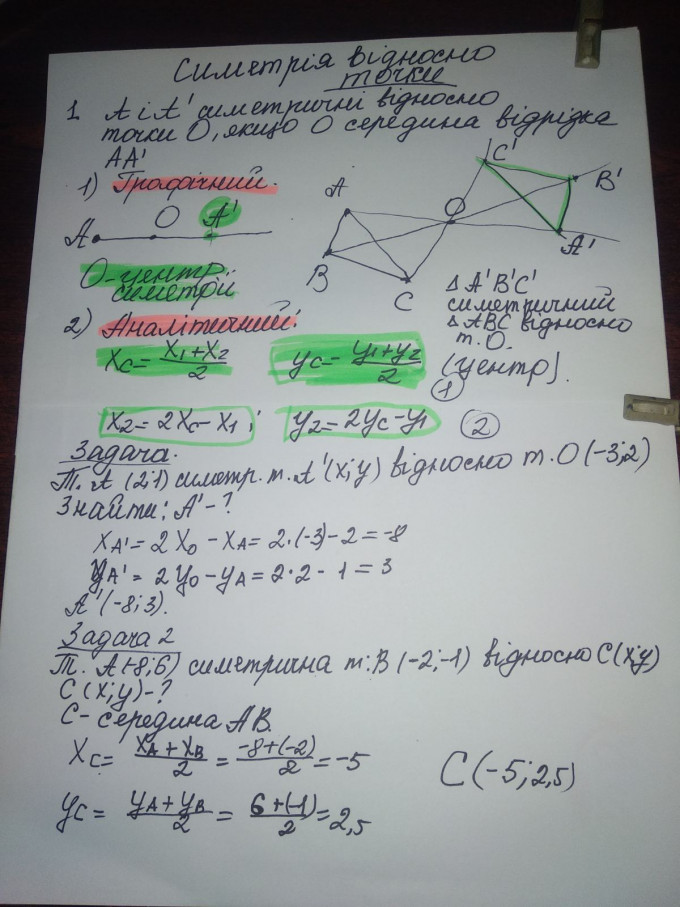 Симетрія відносно
точки
1. А і А' симетричні відносно
точки О, якщо О середина відрізка
АА'
1) Графічний.
А О А'
О-центр
симетрії
A B C O C' B' A'
△ A'B'C'
симетричний
△ ABC відносно
т. О.
(центр).
2) Аналітичний:
Xc = X1+X2/2 yc = y1+y2/2 (1)
X2 = 2Xc - X1; y2 = 2yc - y1 (2)
Задача.
Т. А (2;1) симетр. т. А'(x;y) відносно т. О(-3;2)
Знайти: А' - ?
XA' = 2X0 - XA = 2·(-3)-2 = -8
yA' = 2y0 - yA = 2·2 - 1 = 3
А'(-8;3).
Задача 2
Т. А(-8;6) симетрична т. В(-2;-1) відносно С(x;y)
С(x;y) - ?
С - середина АВ.
Xc = XA+XB/2 = -8+(-2)/2 = -5
yc = yA+yB/2 = 6+(-1)/2 = 2,5
С(-5;2,5)